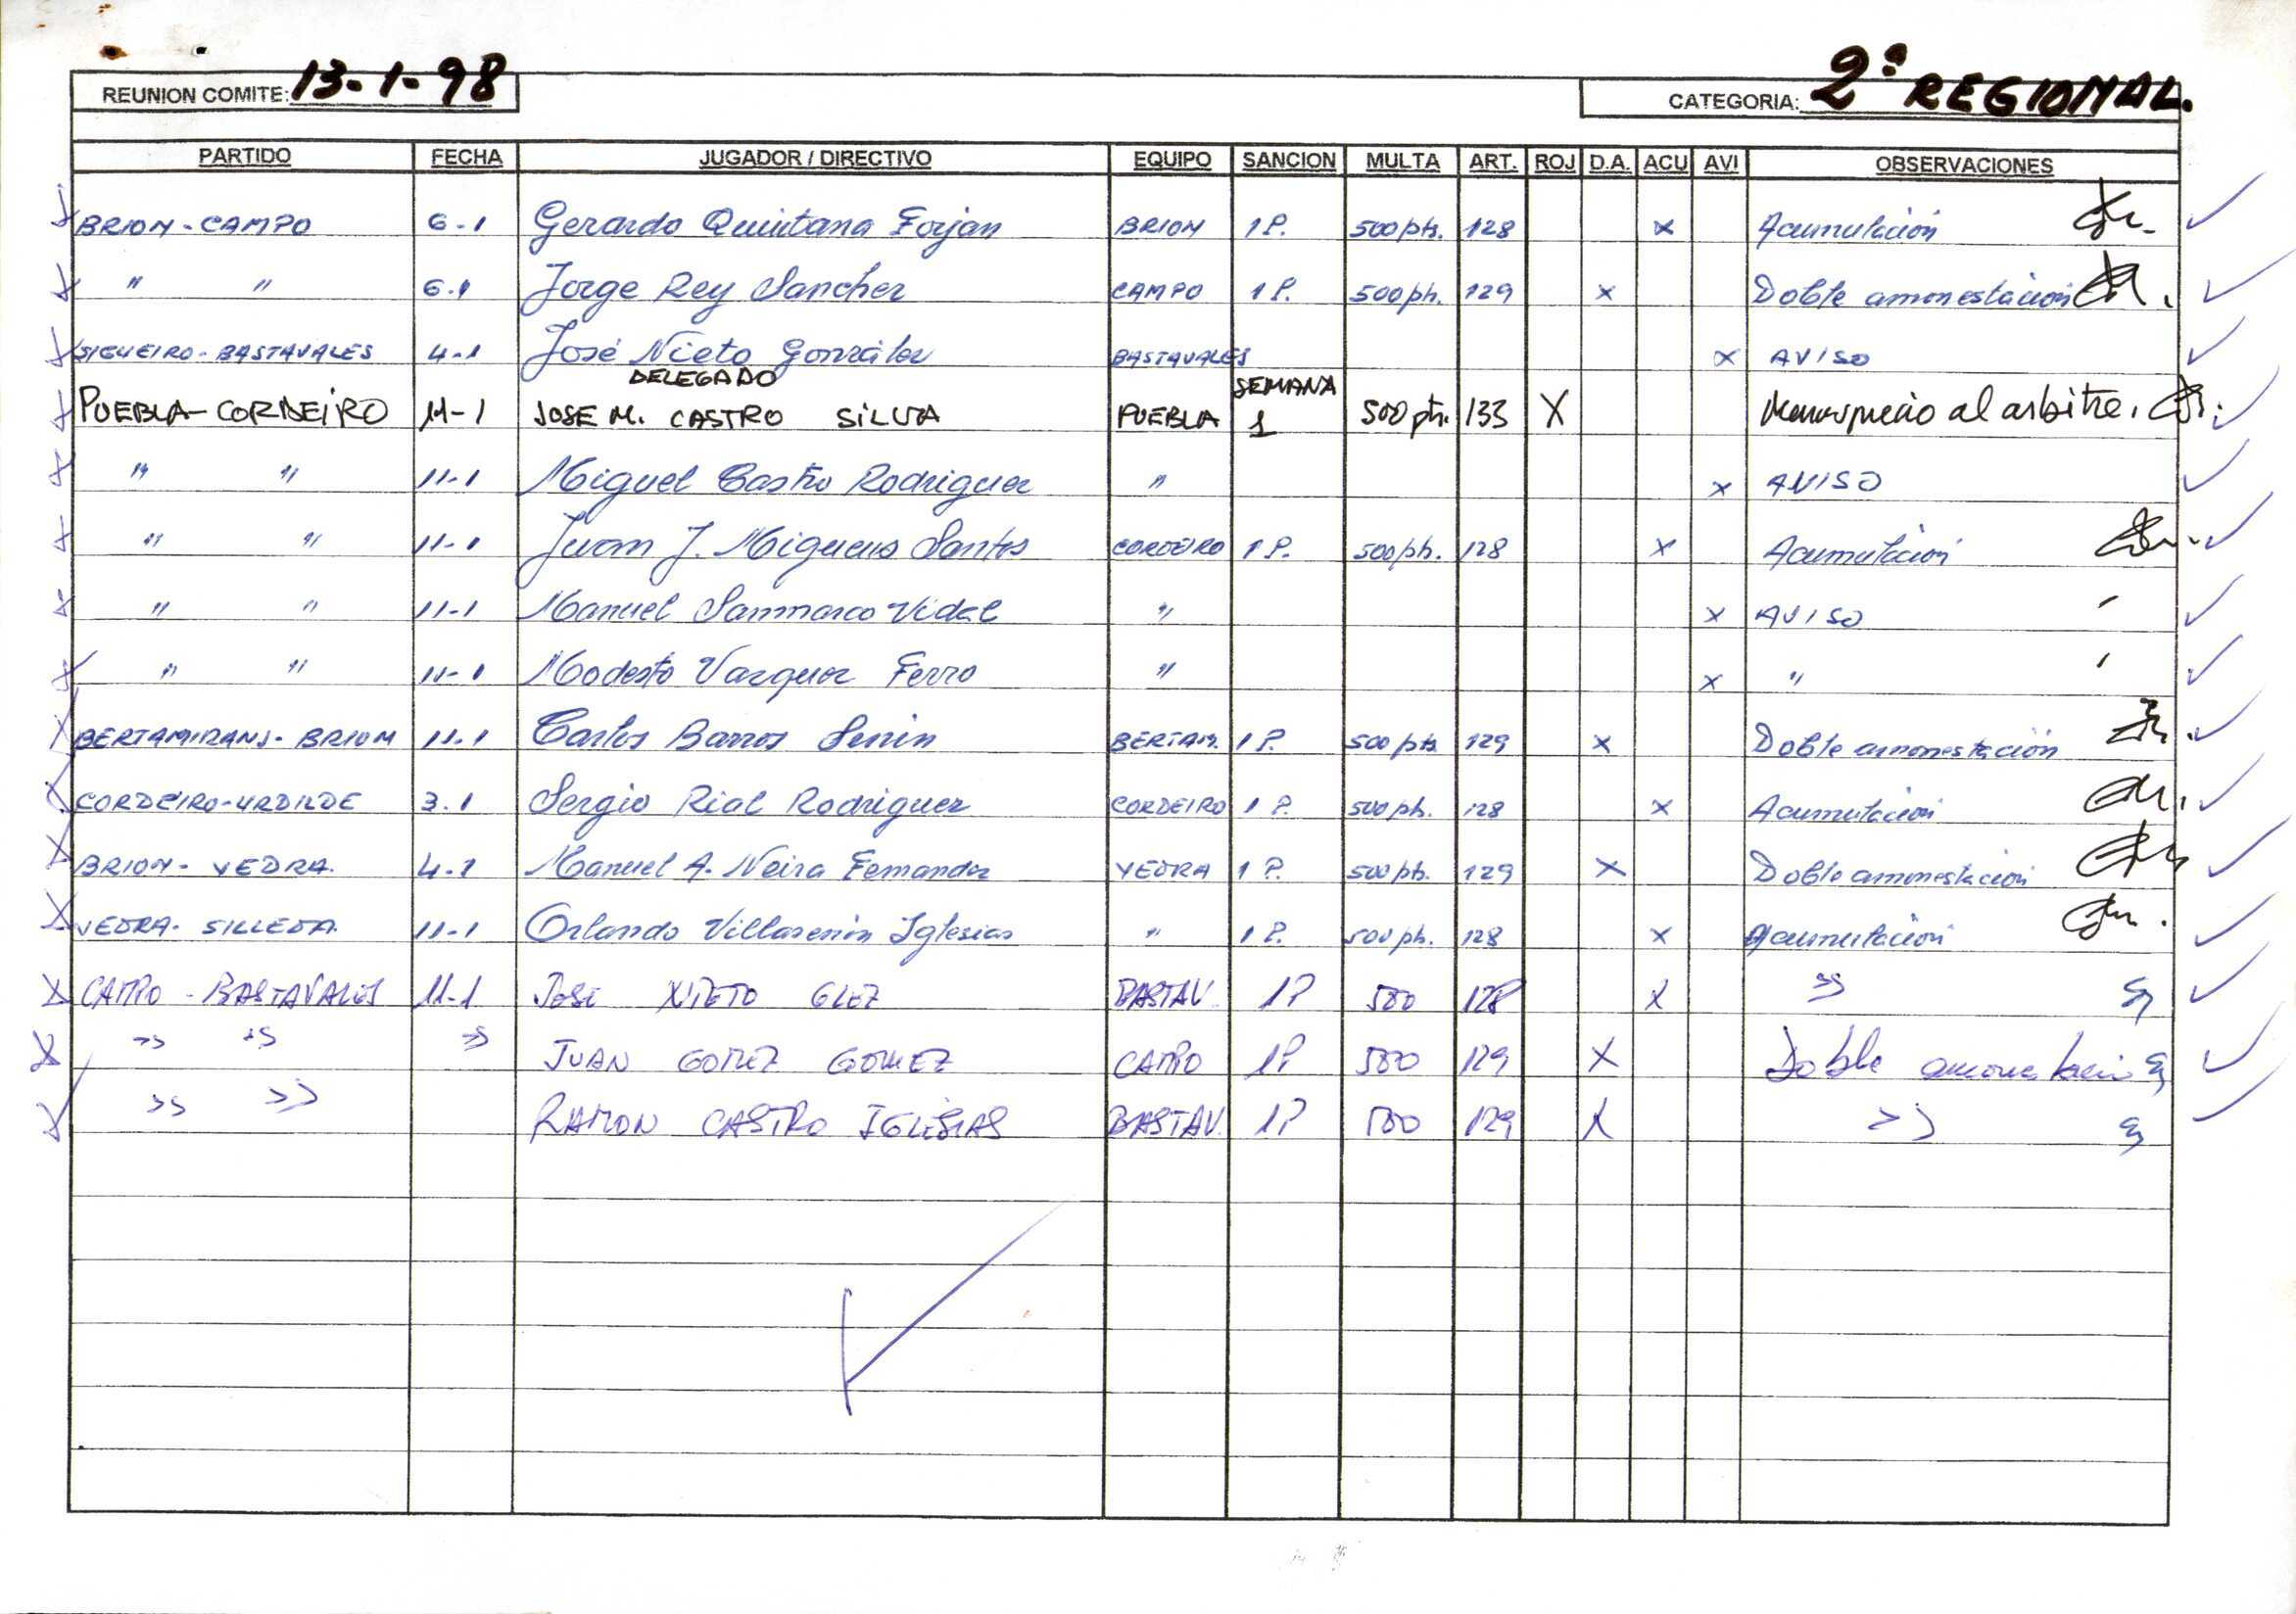 REUNION COMITE: 13-1-98 CATEGORIA: 2ª REGIONAL.
PARTIDO FECHA JUGADOR / DIRECTIVO EQUIPO SANCION MULTA ART. ROJ D.A. ACU AVI OBSERVACIONES
BRION-CAMPO 6-1 Gerardo Quintana Forjan BRION 1 P. 500 pts. 128 x Acumulación
" " 6-1 Jorge Rey Sanchez CAMPO 1 P. 500 pts. 129 x Doble amonestación
SIGUEIRO-BASTAVALES 4-1 José Nieto González BASTAVALES x AVISO
DELEGADO SEMANA
PUEBLA-CORDEIRO 11-1 JOSE M. CASTRO SILVA PUEBLA 1 500 pts. 133 X Menosprecio al arbitro.
" " 11-1 Miguel Castro Rodriguez " x AVISO
" " 11-1 Juan J. Miguens Santos CORDEIRO 1 P. 500 pts. 128 x Acumulación
" " 11-1 Manuel Sanmarco Vidal " x AVISO
" " 11-1 Modesto Vazquez Ferro " x "
BERTAMIRANS-BRION 11-1 Carlos Barros Senin BERTAM. 1 P. 500 pts 129 x Doble amonestación
CORDEIRO-URDILDE 3-1 Sergio Rial Rodriguez CORDEIRO 1 P. 500 pts. 128 x Acumulación
BRION-VEDRA. 4-1 Manuel A. Neira Fernandez VEDRA 1 P. 500 pts. 129 x Doble amonestación
VEDRA-SILLEDA. 11-1 Orlando Villasenin Iglesias " 1 P. 500 pts. 128 x Acumulación
CAMPO-BASTAVALES 11-1 JOSE NIETO GLEZ BASTAV. 1P 500 128 X "
" " " JUAN GOMEZ GOMEZ CAMPO 1P 500 129 X Doble amonestacion
" " RAMON CASTRO IGLESIAS BASTAV. 1P 500 129 X "